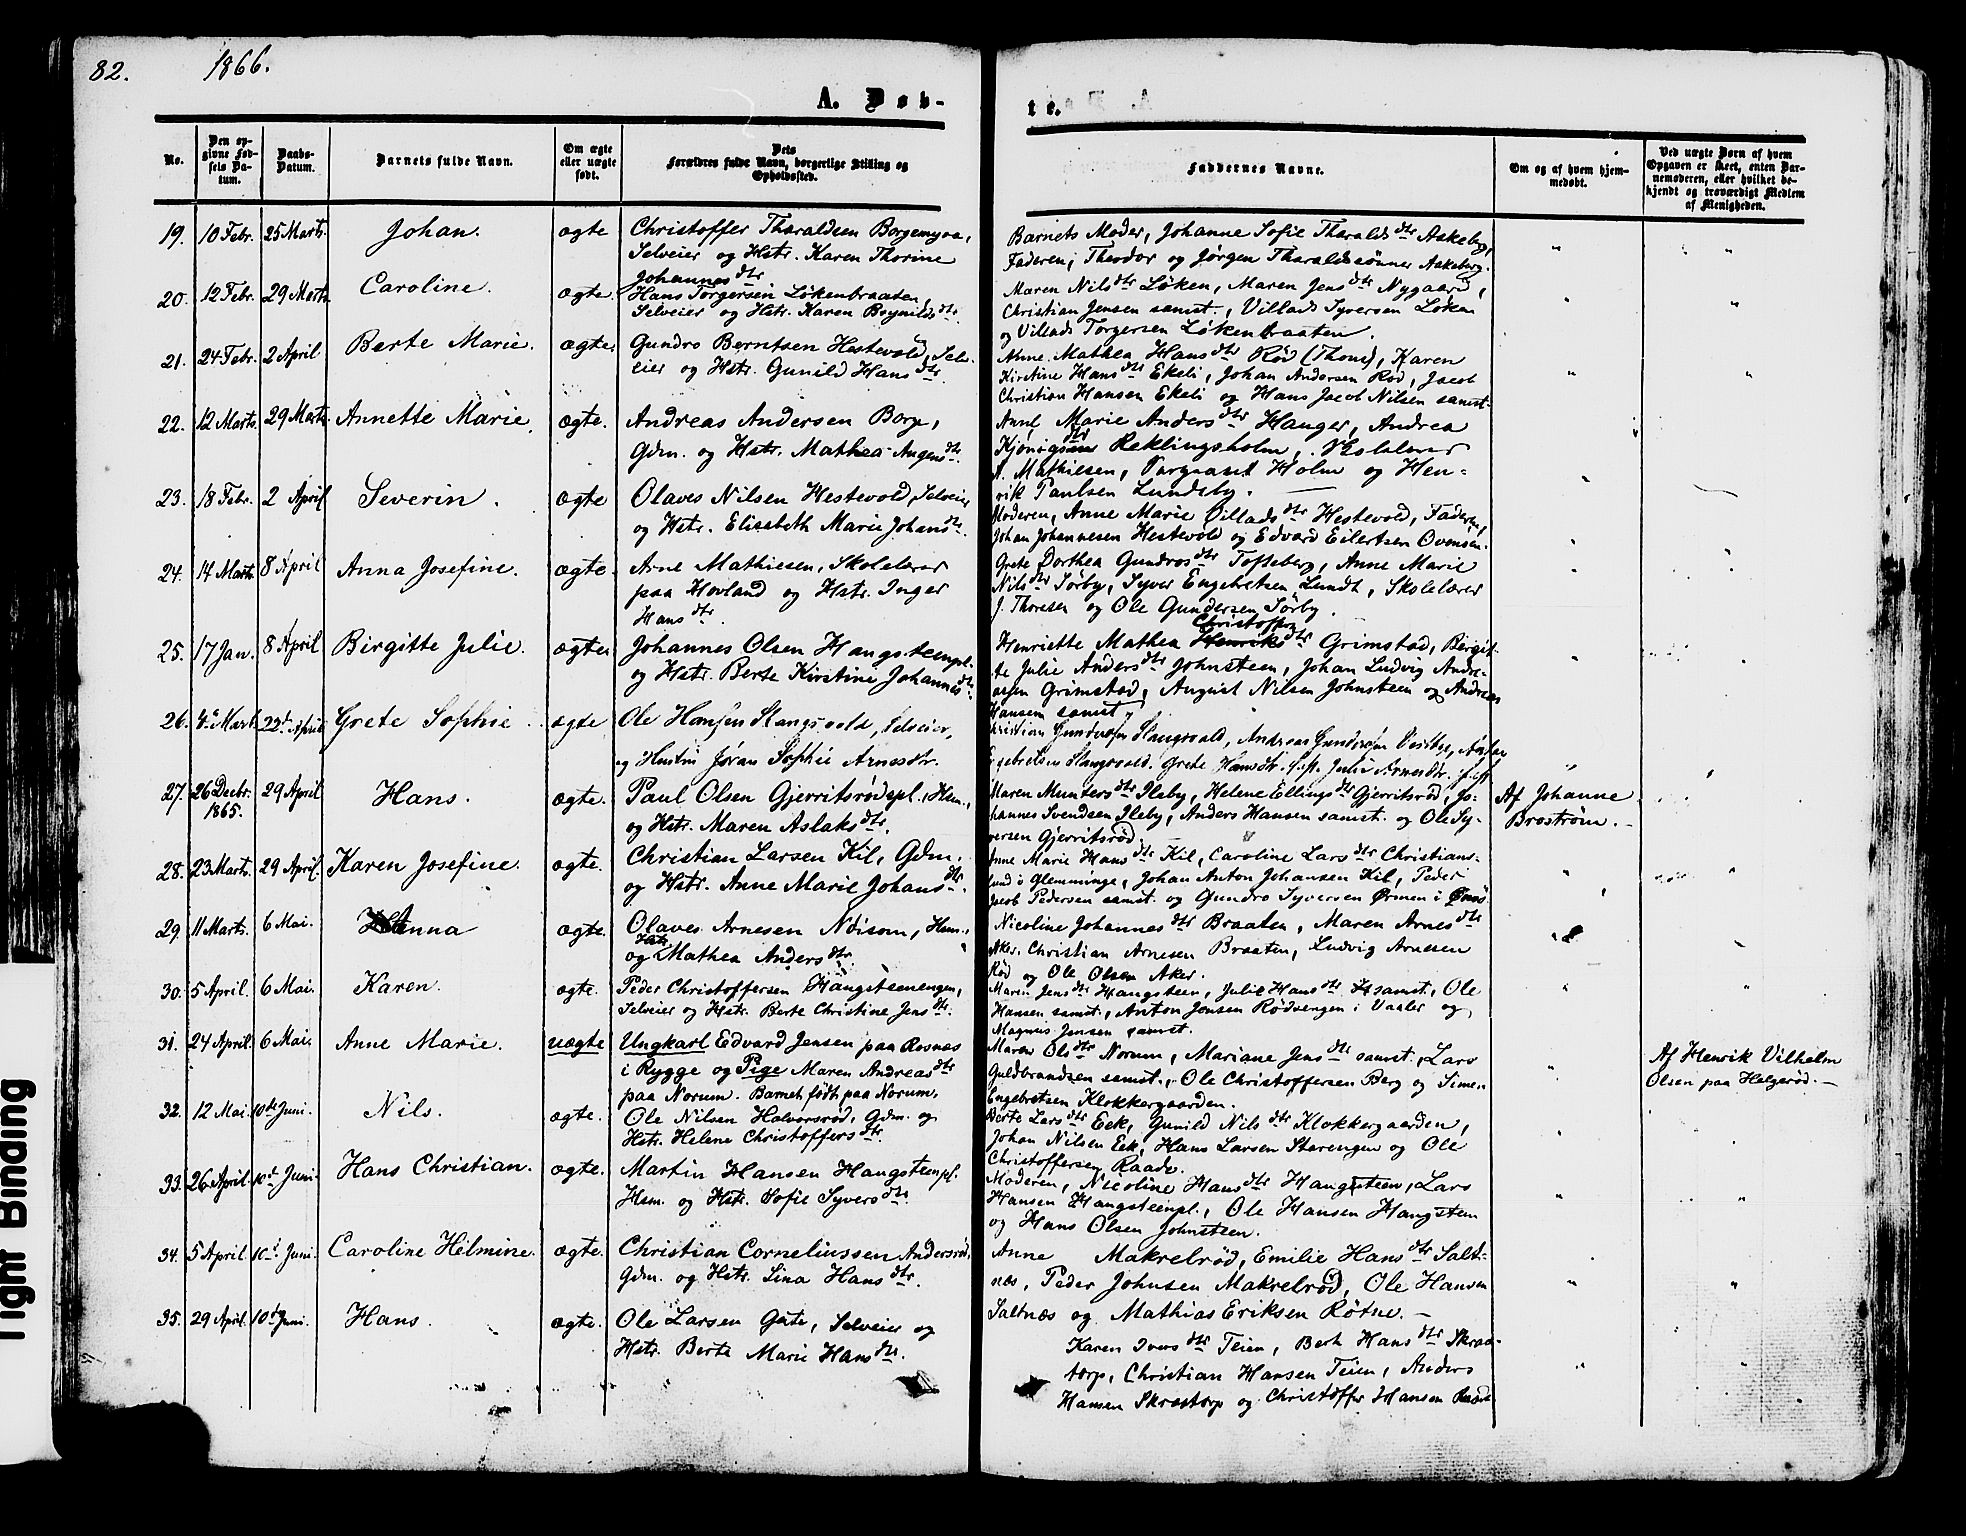 82.
1866.
A. Døb-
te.
No.
Den opgivne Fødsels Datum.
Daabs-Datum.
Barnets fulde Navn.
Om ægte eller uægte født.
Dets Forældres fulde Navn, borgerlige Stilling og Opholdssted.
Faddernes Navne.
Om og af hvem hjemmedøbt.
Ved uægte Børn af hvem Opgaven er skeet, enten Barnemoderen, eller hvilket bekjendt og troværdigt Medlem af Menigheden.
19. 10 Febr. 25 Marts. Johan. ægte Christoffer Tharaldsen Borgemyra,
Selveier og Hstr. Karen Thorine
Johannesdtr
Barnets Moder, Johanne Sofie Tharaldsdtr Askeberg,
Faderen, Theodor og Jørgen Tharaldssønner Askeberg.
20. 12 Febr. 29 Marts Caroline. ægte. Hans Torgersen Løkenbraaten,
Selveier og Hstr. Karen Brynildsdtr.
Maren Nilsdtr Løken, Maren Jensdtr Nygaard,
Christian Jensen samst., Villads Syversen Løken
og Villads Torgersen Løkenbraaten.
21. 24 Febr. 2 April Berte Marie. ægte. Gundro Berntsen Hestevold, Selv-
eier og Hstr. Gunild Hansdtr.
Anne Mathea Hansdtr Rød (Thom), Karen
Kirstine Hansdtr Ekeli, Johan Andersen Rød, Jacob
Christian Hansen Ekeli og Hans Jacob Nilsen samst.
22. 12 Marts. 29 Marts Annette Marie. ægte. Andreas Andersen Borge,
Gdm. og Hstr. Mathea Augensdtr.
Anne Marie Andersdtr Hauger, Andrea
Reklingsholm, Skolelærer
A. Mathiesen, Holm og Hen-
rik Paulsen Lundeby.
23. 18 Febr. 2 April Severin. ægte Olaves Nilsen Hestevold, Selveier
og Hstr. Elisabeth Marie Johansdtr.
Moderen, Anne Marie Villadsdtr Hestevold, Faderen,
Johan Johannesen Hestevold og Edvard Eilertsen Ovensen.
24. 14 Marts 8 April Anna Josefine. ægte. Arne Mathiesen, Skolelærer
paa Hovland og Hstr. Inger
Hansdtr.
Grete Dorthea Gundrosdtr Tofteberg, Anne Marie
Nilsdtr Sørby, Syver Engebretsen Lundt, Skolelærer
J. Thoresen og Ole Gundersen Sørby.
25. 17 Jan. 8 April Birgitte Julie. ægte Johannes Olsen Hangsteenpl.
og Hstr. Berte Kirstine Johannesdtr.
Christoffer
Henriette Mathea Henriksdtr Grimstad, Birgit-
te Julie Andersdtr Johnsteen, Johan Ludvig Andre-
asen Grimstad, August Nilsen Johnsteen og Andreas
Hansen samst.
26. 4de Marts 22d April Grete Sophie. ægte Ole Hansen Slangsvold, Selveier,
og Hustru Jøran Sophie Arnesdtr.
Christian Gundersen Slangsvold, Andreas Gundersen
Engebretsen Slangsvold. Grete Hansdtr. Julie Arnesdtr.
27. 26 Decbr. 1865. 29 April Hans. ægte. Paul Olsen Gjerritsrødepl. Hsm.,
og Hstr. Maren Aslaksdtr.
Maren Muntersdtr Ileby, Helene Ellingsdtr Gjerritsrød, Jo-
hannes Svendsen Ileby, Anders Hansen samst. og Ole Sy-
versen Gjerritsrød.
Af Johanne
Brostrøm.
28. 23 Marts. 29 April. Karen Josefine. ægte. Christian Larsen Kil, Gdm.
og Hstr. Anne Marie Johansdtr.
Anne Marie Hansdtr Kil, Caroline Larsdtr Christians-
lund i Glemminge, Johan Anton Johansen Kil, Peder
Jacob Pedersen samst. og Gundro Syversen Ørmen i Onsø
29. 11 Marts. 6 Mai. Anna ægte. Olaves Arnesen Ndisom, Hsm.,
og Hstr. Mathea Andersdtr.
Nicoline Johannesdtr Braaten, Maren Arnesdtr
Aker. Christian Arnesen Braaten, Ludvig Arnesen
Rød og Ole Olsen Aker.
30. 5 April. 6 Mai. Karen. ægte. Peder Christoffersen Hangsteenengen,
Selveier og Hstr. Berte Christine Jensdtr.
Maren Jensdtr Hangsteen, Julie Hansdtr samst., Ole
Hansen samst., Anton Jonsen Rødsengen i Vaaler og
Magnus Jensen samst.
31. 24 April. 6 Mai. Anne Marie. uægte Ungkarl Edvard Jensen paa Rosnæs
i Rygge og Pige Maren Andreasdtr
paa Norum. Barnet født paa Norum.
Maren Olsdtr Norum, Mariane Jensdtr samst., Lars
Guldbrandsen samst., Ole Christoffersen Berg og Simen
Engebretsen Klokkergaarden.
Af Henrik Vilhelm
Olsen paa Helgerød.
32. 12 Mai. 10de Juni. Nils. ægte. Ole Nilsen Halvorsrød, Gdm. og
Hstr. Helene Christoffersdtr.
Berte Larsdtr Eek, Gunild Nilsdtr Klokkergaarden,
Johan Nilsen Eek, Hans Larsen Starengen og Ole
Christoffersen Raade.
33. 26 April. 10d Juni. Hans Christian. ægte. Martin Hansen Hangsteenpl.
Hsm. og Hstr. Sofie Syversdtr.
Moderen, Nicoline Hansdtr Hangsteen, Lars
Hansen Hangsteenpl., Ole Hansen Hangsteen
og Hans Olsen Johnsteen.
34. 5 April. 10d Juni. Caroline Hilmine. ægte. Christian Corneliussen Andersrød,
Gdm. og Hstr. Lina Hansdtr.
Anne Makrelrød, Emilie Hansdtr Salt-
næs, Peder Johnsen Makrelrød, Ole Hansen
Saltnæs og Mathias Eriksen Røtne.
35. 29 April. 10d Juni. Hans. ægte. Ole Larsen Gate, Selveier og
Hstr. Berte Marie Hansdtr.
Karen Iversdtr Teien, Berte Hansdtr Skraa-
torp, Christian Hansen Teien, Anders
Hansen Skraatorp og Christoffer Hansen
Tight Binding